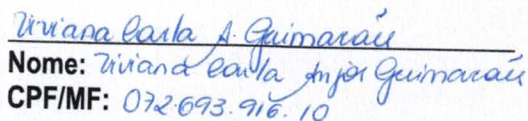 Viviana Carla A. Guimarães
Nome: Viviana Carla Anjos Guimarães
CPF/MF: 072.693.916.10